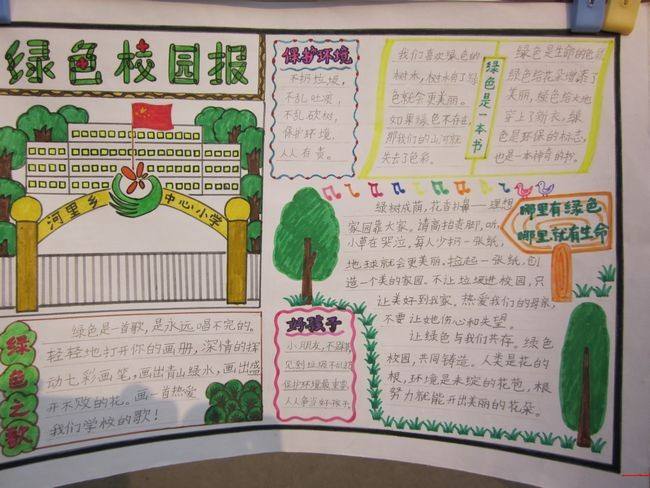 绿色校园报
河里乡
中心小学
绿色之歌
绿色是一首歌，是永远唱不完的。
轻轻地打开你的画册，深情的挥
动七彩画笔，画出青山绿水，画出盛
开不败的花。画一首热爱
我们学校的歌！
保护环境
不扔垃圾，
不乱吐痰，
不乱砍树，
保护环境，
人人有责。
我们喜欢绿色的
树木，树木有了绿
色就会更美丽。
如果绿色不存在，
那我们的山河就
失去了色彩。
绿色是一本书
绿色是生命的色
绿色给花朵增添了
美丽，绿色给大地
穿上了新衣，绿
色是环保的标志，
也是一本神奇的书。
哪里有绿色
哪里就有生命
绿树成荫，花香扑鼻——理想
家园靠大家。请高抬贵脚，听，
小草在哭泣，每人少扔一张纸，
地球就会更美丽。捡起一张纸，创
造一个美的家园。不让垃圾进校园，只
让美好到我家。热爱我们的母亲，
不要让她伤心和失望。
让绿色与我们共存。绿色
校园，共同铸造。人类是花的
根，环境是未绽的花苞，根
努力就能开出美丽的花朵。
好孩子
小朋友，不
见到垃圾
保护环境最重要，
人人争当好孩子。